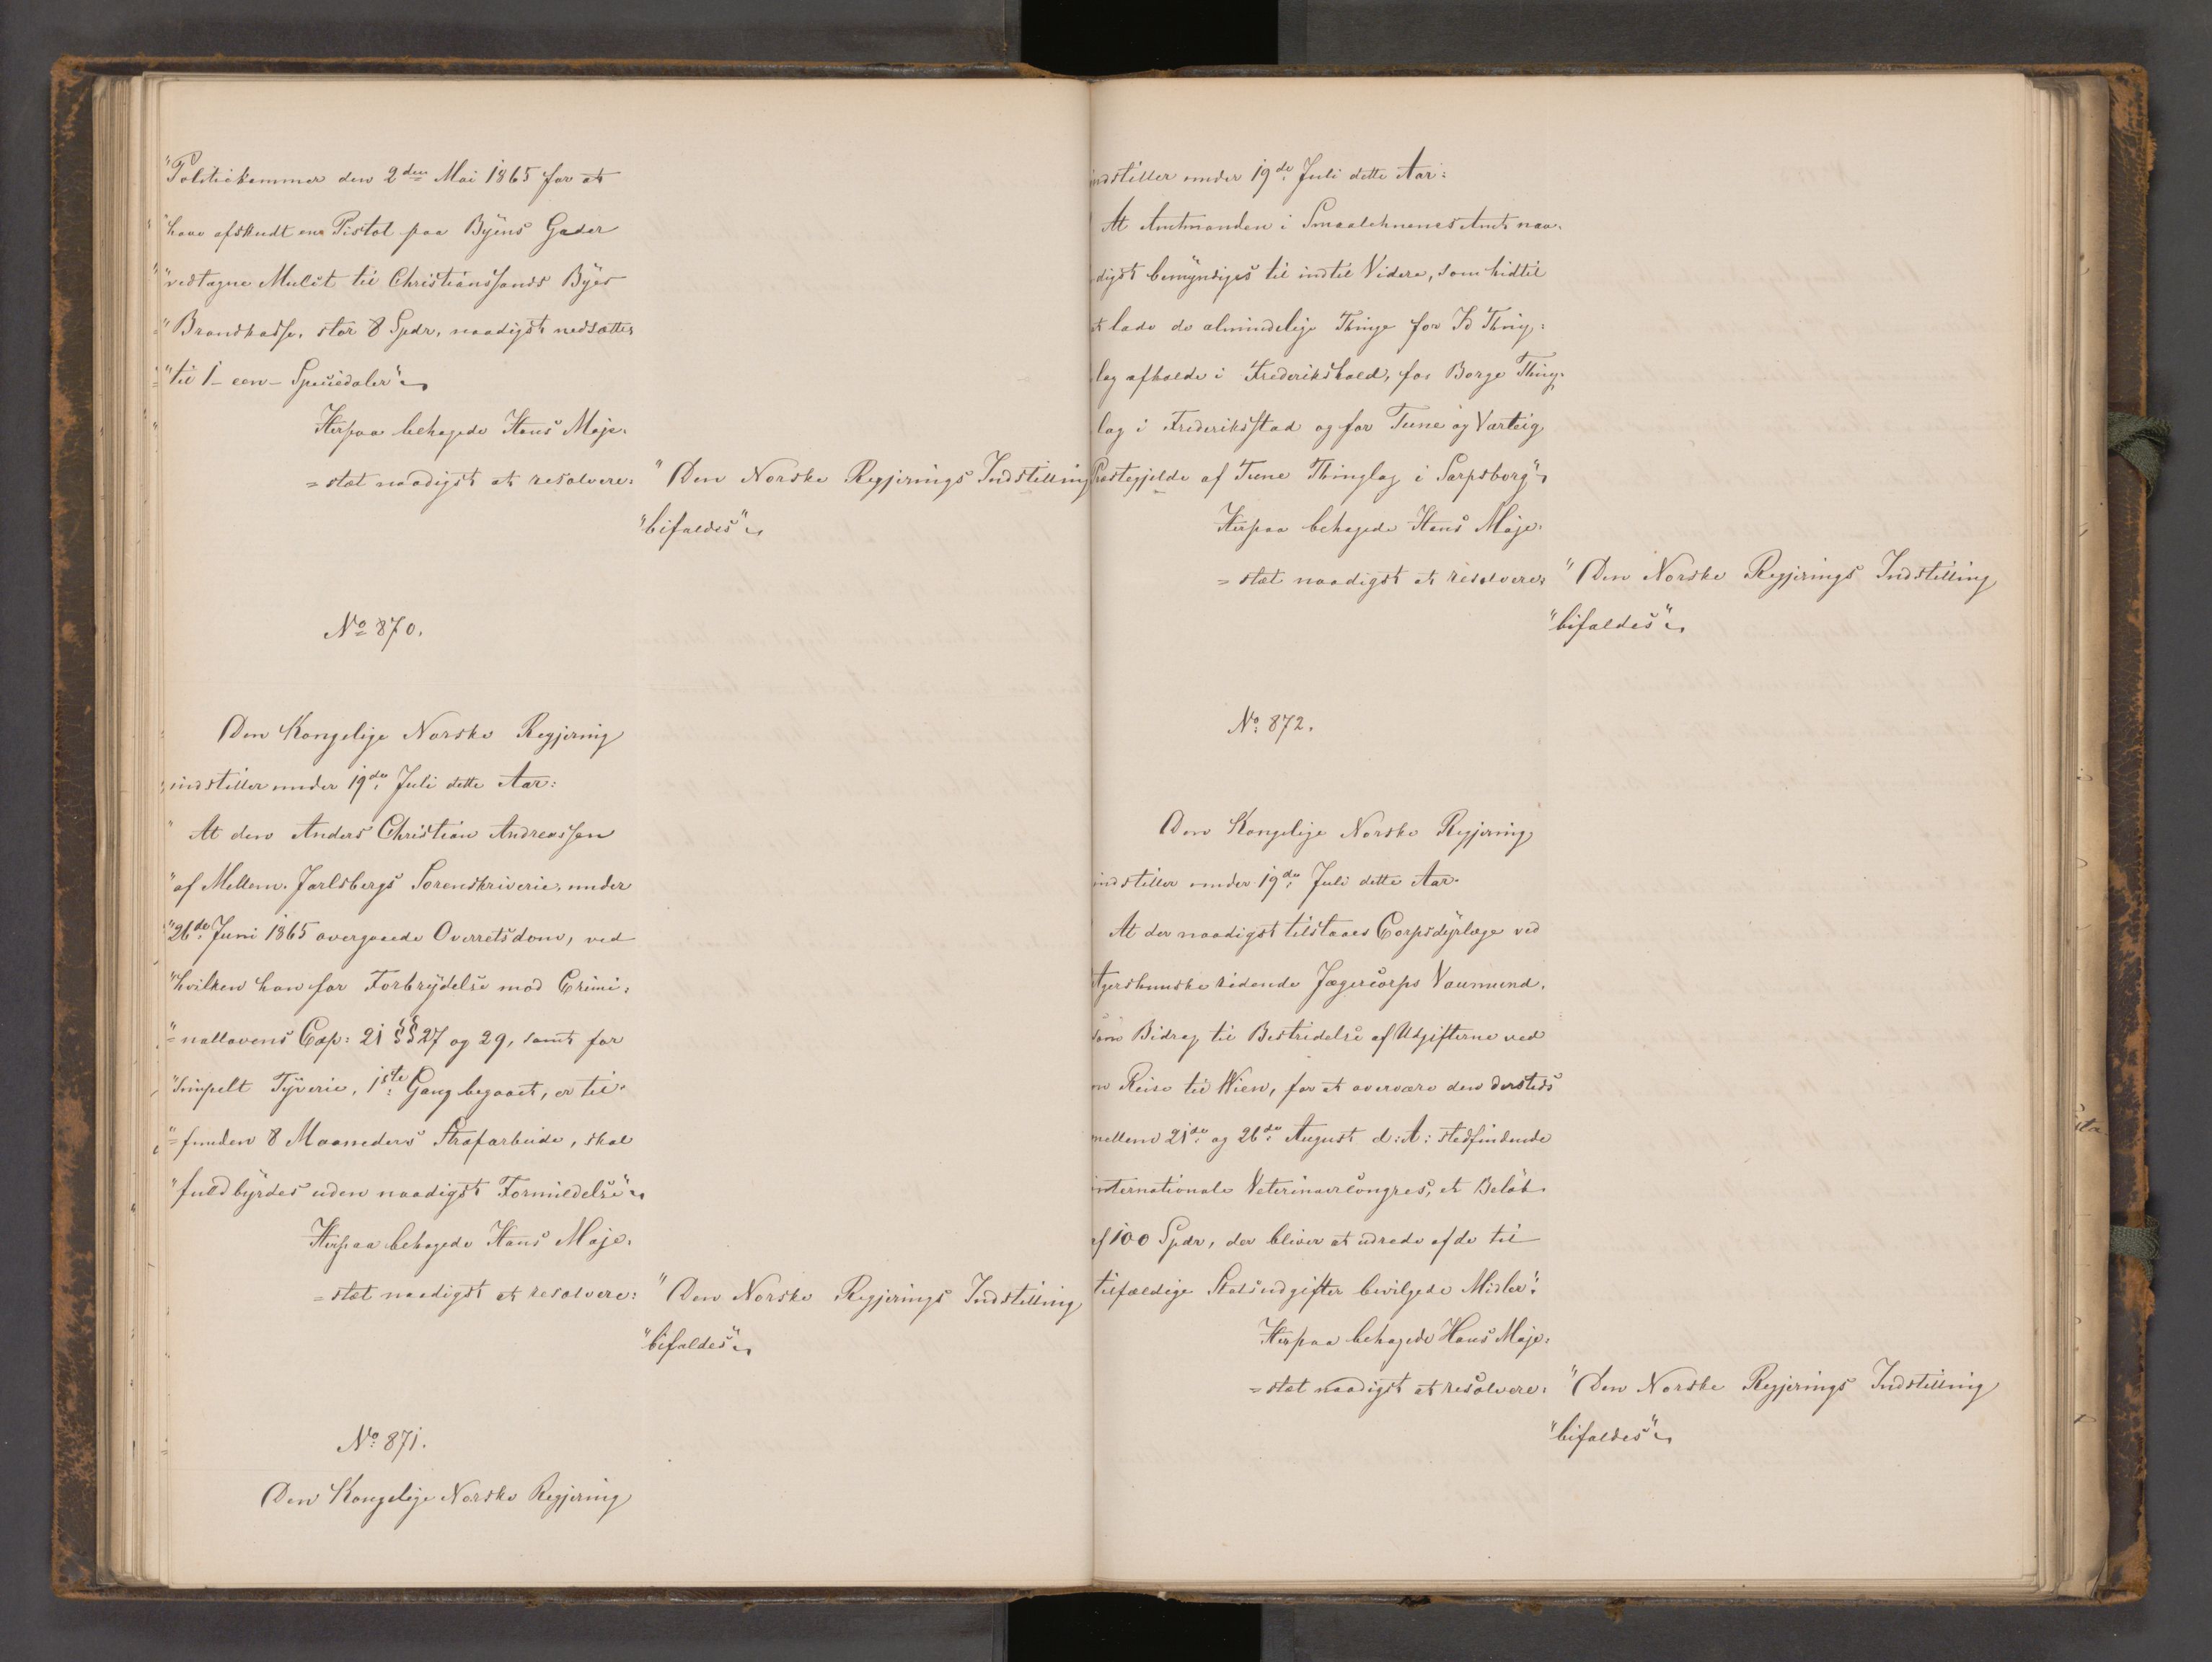 "Politiekammer den 2den Mai 1865 for at
"have afskudt en Pistol paa Byens Gader
"vedtagne Mulct til Christianssands Byes
"Brandkasse, stor 8 Spdr, naadigst nedsættes
"til 1 - een - Speciedaler"
Herpaa behagede Hans Maje-
=stæt naadigst at resolvere: "Den Norske Regjerings Indstilling
"bifaldes"
No 870.
Den Kongelige Norske Regjering
indstiller under 19de Juli dette Aar:
"At den Anders Christian Andreassen
"af Mellem-Jarlsbergs Sorenskriverie, under
"26de Juni 1865 overgaaede Overretsdom, ved
"hvilken han for Forbrydelse mod Crimi-
"=nallovens Cap: 21 §§ 27 og 29, samt for
"simpelt Tyverie, 1ste Gang begaaet, er til-
"=funden 8 Maaneders Strafarbeide, skal
"fuldbyrdes uden naadigst Formildelse"
Herpaa behagede Hans Maje-
=stæt naadigst at resolvere: "Den Norske Regjerings Indstilling
"bifaldes"
No 871.
Den Kongelige Norske Regjering
indstiller under 19de Juli dette Aar:
At Amtmanden i Smaalehnenes Amt naa-
digst bemyndiges til indtil Videre, som hidtil
at lade de almindelige Thinge for Id Thing-
lag afholde i Frederikshald, for Borge Thing-
lag i Frederiksstad og for Tune og Varteig
Præstegjelde af Tune Thinglag i Sarpsborg"
Herpaa behagede Hans Maje-
=stæt naadigst at resolvere: "Den Norske Regjerings Indstilling
"bifaldes"
No 872.
Den Kongelige Norske Regjering
indstiller under 19de Juli dette Aar:
At der naadigst tilstaaes Corpsdyrlæge ved
Agershuuske ridende Jægercorps Vaumund,
som Bidrag til Bestridelse af Udgifterne ved
en Reise til Wien, for at overvære den dersteds
mellem 21de og 26de August d: A: stedfindende
internationale Veterinaircongres, et Beløb
af 100 Spdr, der bliver at udrede af de til
tilfældige Statsudgifter bevilgede Midler"
Herpaa behagede Hans Maje-
=stæt naadigst at resolvere: "Den Norske Regjerings Indstilling
"bifaldes"